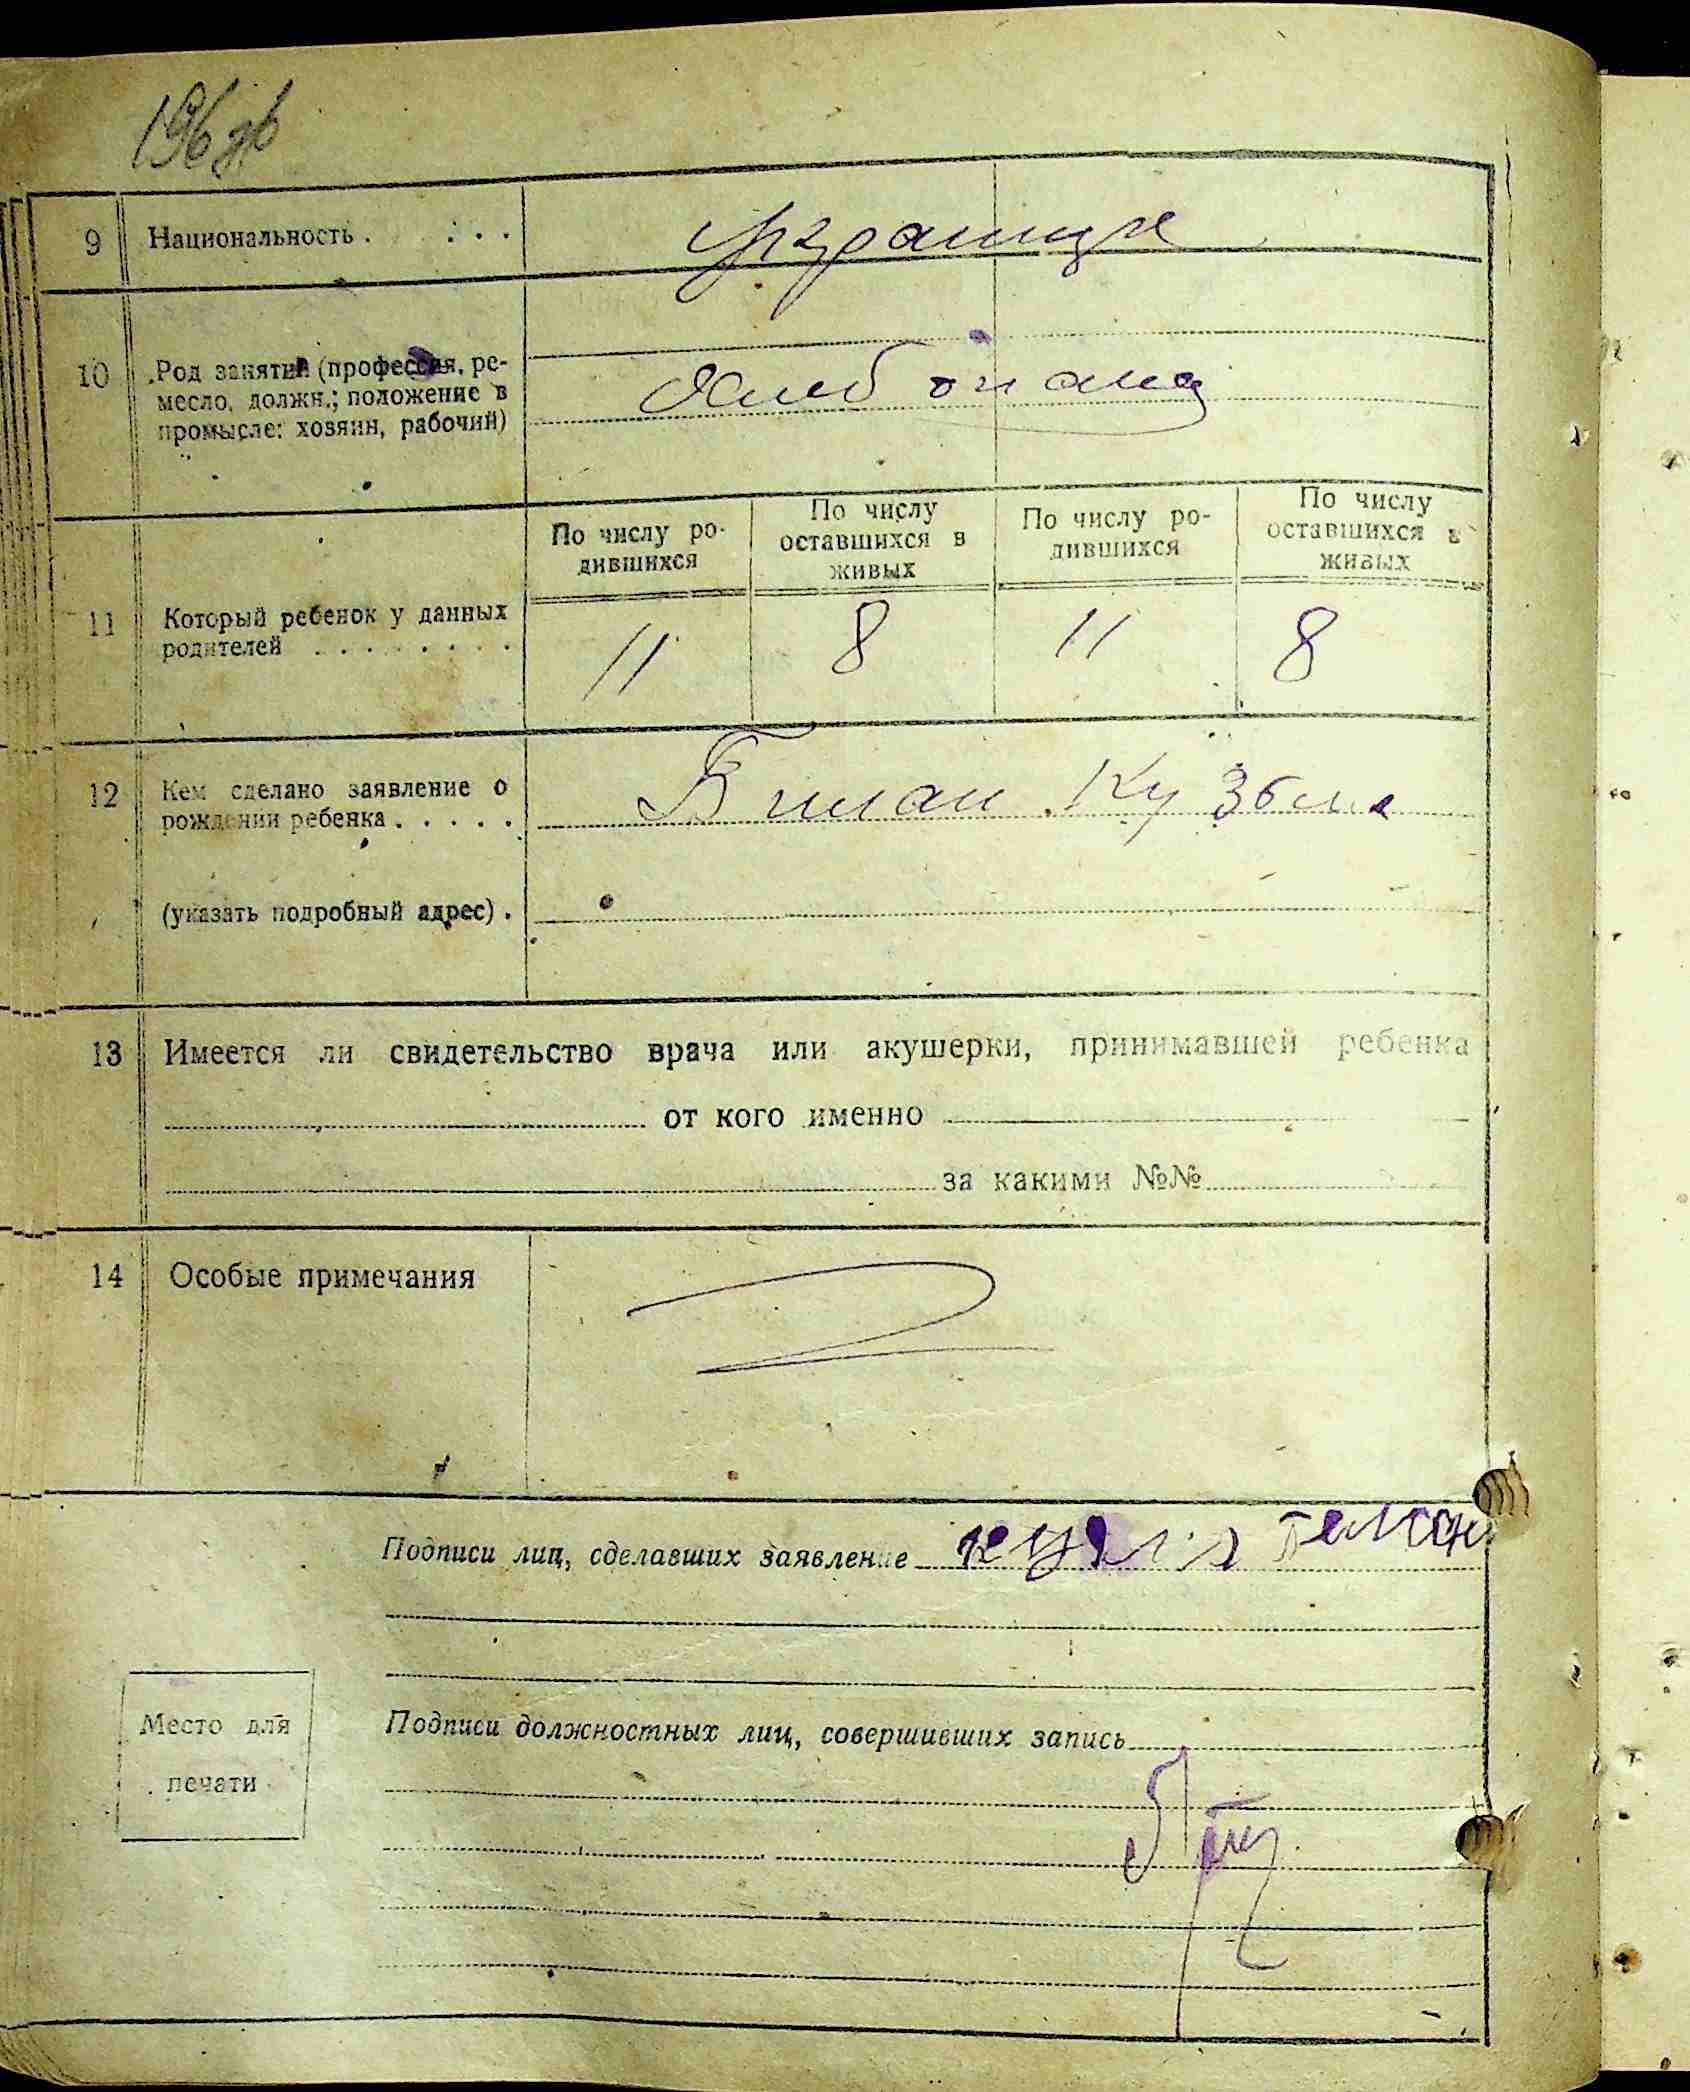 196 зв
9 Национальность . . . . украинцы
10 Род занятий (профессия, ре-
месло, должн.; положение в
промысле: хозяин, рабочий)
Хлебопашц
По числу ро-
дившихся
По числу
оставшихся в
живых
По числу ро-
дившихся
По числу
оставшихся в
живых
11 Который ребенок у данных
родителей . . . . . . . .
11 8 11 8
12 Кем сделано заявление о
рождении ребенка . . . . .
Билан Кузьма
(указать подробный адрес) .
13 Имеется ли свидетельство врача или акушерки, принимавшей ребенка
от кого именно
за какими №№
14 Особые примечания
Подписи лиц, сделавших заявление
Место для
печати
Подписи должностных лиц, совершивших запись